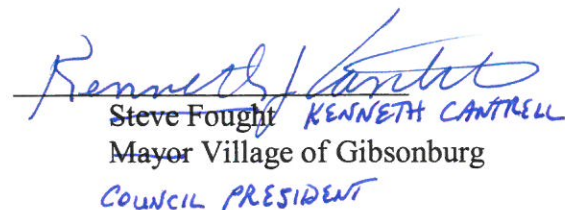 Kenneth J Cantrell
Steve Fought KENNETH CANTRELL
Mayor Village of Gibsonburg
COUNCIL PRESIDENT